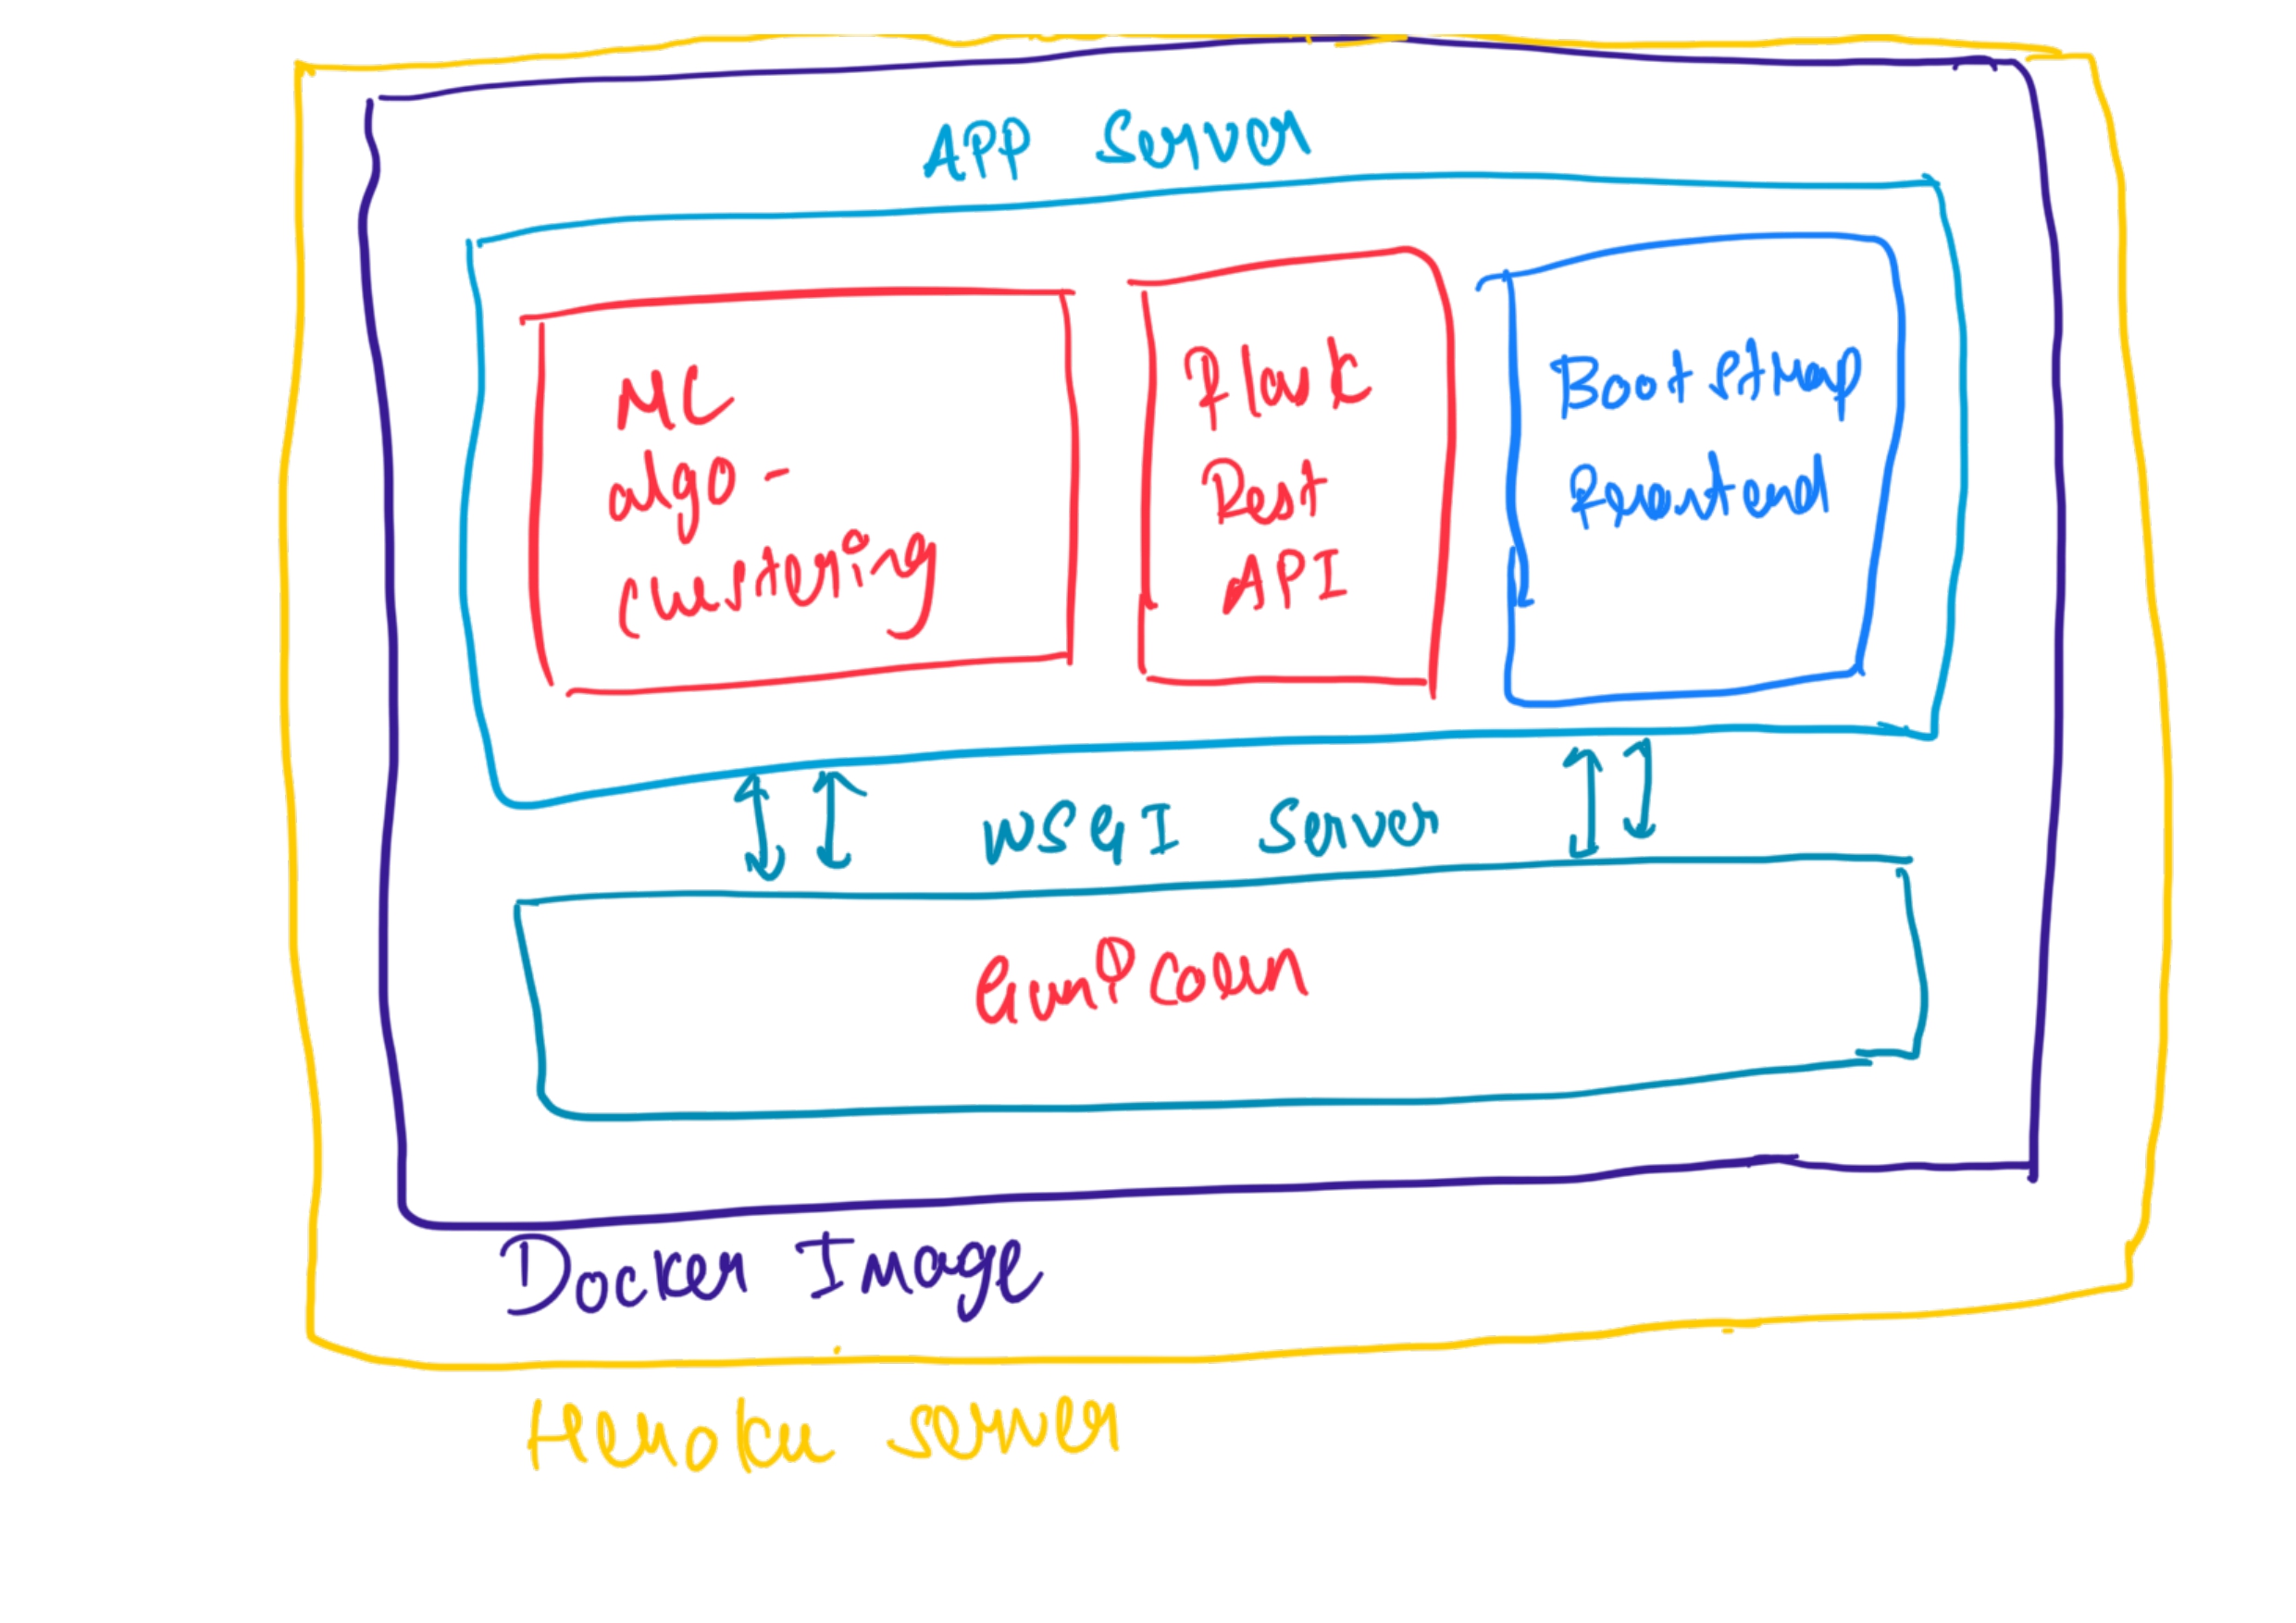 APP Server
ML
algo -
clustering
Flask
Rest
API
Bootstrap
Frontend
WSGI Server
Gunicorn
Docker Image
Heroku server